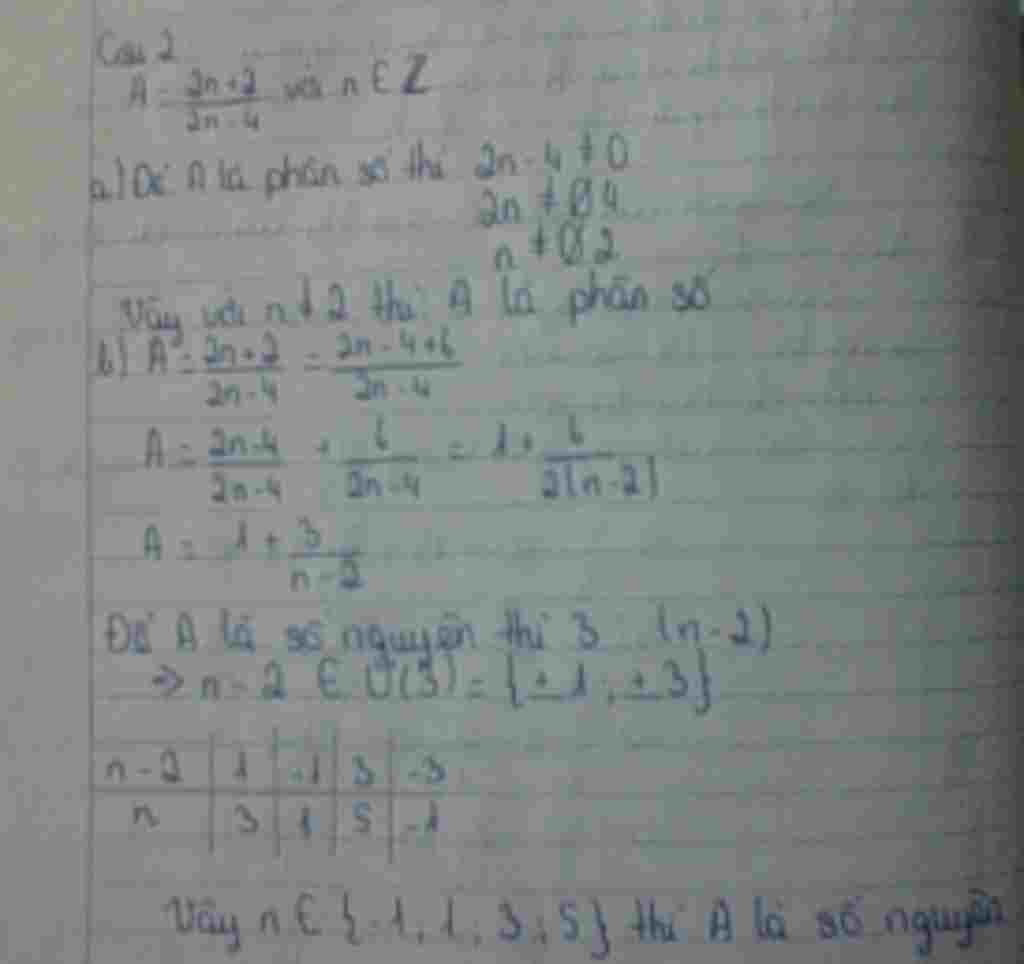 Câu 2
A = \frac{2n+2}{2n-4} với n ∈ Z
a) Để A là phân số thì 2n-4 ≠ 0
2n ≠ 4
n ≠ 2
Vậy với n ≠ 2 thì A là phân số
b) A = \frac{2n+2}{2n-4} = \frac{2n-4+6}{2n-4}
A = \frac{2n-4}{2n-4} + \frac{6}{2n-4} = 1 + \frac{6}{2(n-2)}
A = 1 + \frac{3}{n-2}
Để A là số nguyên thì 3 ⋮ (n-2)
=> n-2 ∈ Ư(3) = {±1; ±3}
n-2 | 1 | -1 | 3 | -3
n | 3 | 1 | 5 | -1
Vậy n ∈ {-1; 1; 3; 5} thì A là số nguyên